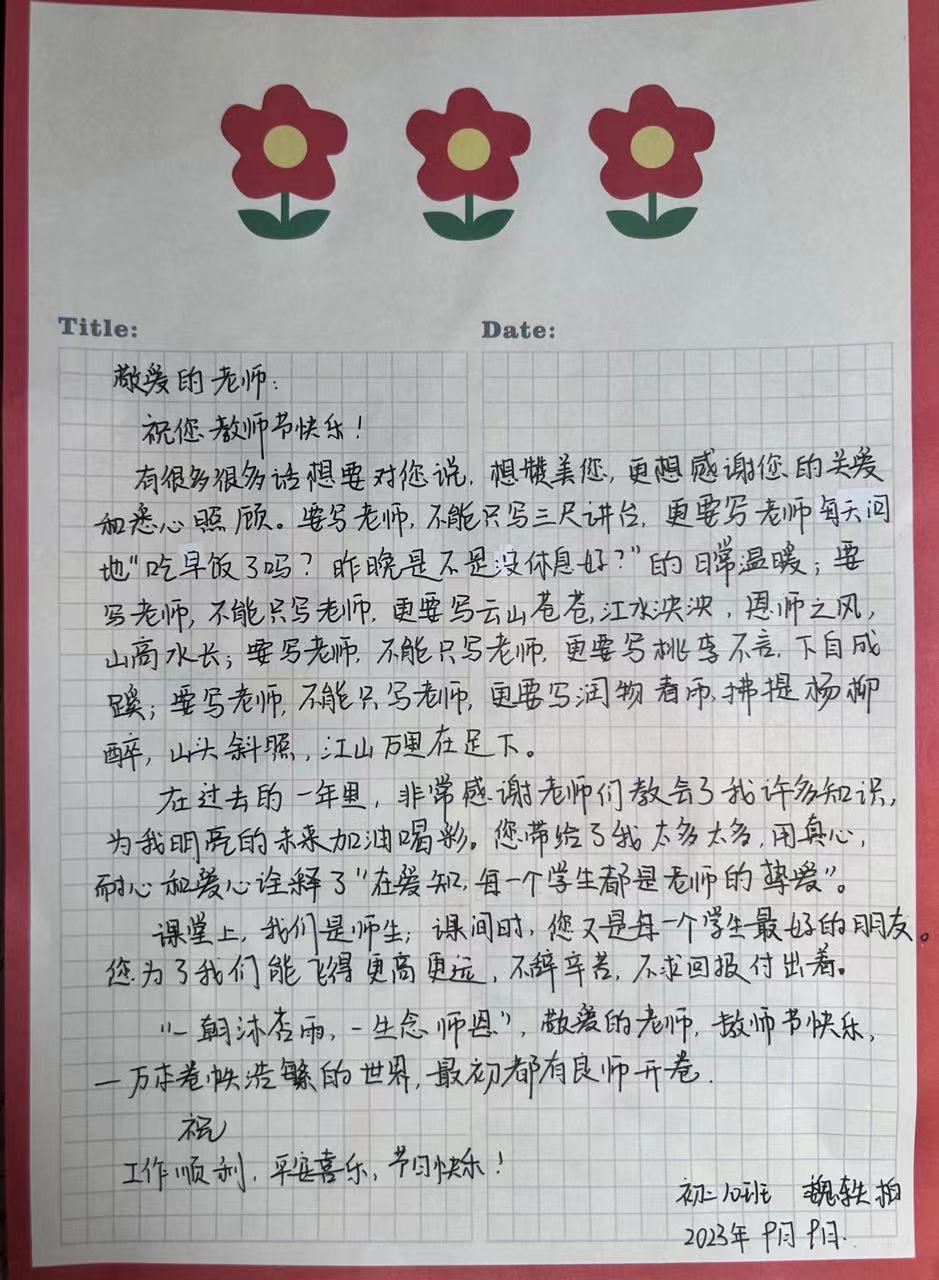 Title:
Date:
敬爱的老师:
祝您教师节快乐!
有很多很多话想要对您说,想赞美您,更想感谢您的关爱
和悉心照顾。要写老师,不能只写三尺讲台,更要写老师每天问
地“吃早饭了吗?昨晚是不是没休息好?”的日常温暖;要
写老师,不能只写老师,更要写云山苍苍,江水泱泱,恩师之风,
山高水长;要写老师,不能只写老师,更要写桃李不言,下自成
蹊;要写老师,不能只写老师,更要写润物春雨,拂提杨柳
醉,山头斜照,江山万里在足下。
在过去的一年里,非常感谢老师们教会了我许多知识,
为我明亮的未来加油喝彩。您带给了我太多太多,用真心,
耐心和爱心诠释了“在爱知,每一个学生都是老师的挚爱”。
课堂上,我们是师生;课间时,您又是每一个学生最好的朋友。
您为了我们能飞得更高更远,不辞辛苦,不求回报付出着。
“一朝沐杏雨,一生念师恩”,敬爱的老师,教师节快乐,
一万本卷帙浩繁的世界,最初都有良师开卷.
祝
工作顺利,平安喜乐,节日快乐!
初二10班 魏轶柏
2023年9月9日.